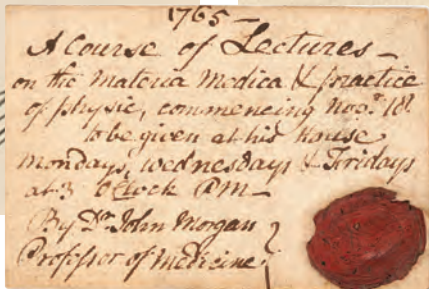 1765 —
A Course of Lectures —
on the Materia Medica & practice
of physic, commencing Nov.r 18.
to be given at his House
Mondays, Wednesdays & Fridays
at 3 O'Clock P.M —
By Dr. John Morgan
Professor of Medicine